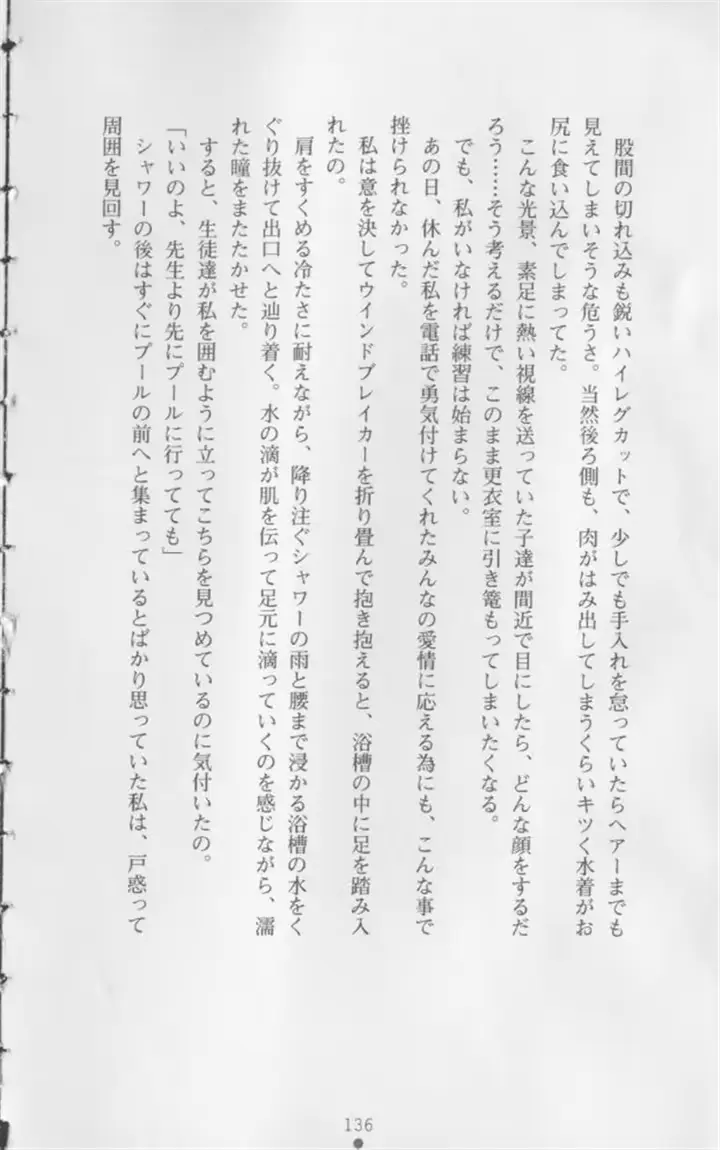 股間の切れ込みも鋭いハイレグカットで、少しでも手入れを怠っていたらヘアーまでも
見えてしまいそうな危うさ。当然後ろ側も、肉がはみ出してしまうくらいキツく水着がお
尻に食い込んでしまってた。
こんな光景、素足に熱い視線を送っていた子達が間近で目にしたら、どんな顔をするだ
ろう……そう考えるだけで、このまま更衣室に引き篭もってしまいたくなる。
でも、私がいなければ練習は始まらない。
あの日、休んだ私を電話で勇気付けてくれたみんなの愛情に応える為にも、こんな事で
挫けられなかった。
私は意を決してウインドブレイカーを折り畳んで抱き抱えると、浴槽の中に足を踏み入
れたの。
肩をすくめる冷たさに耐えながら、降り注ぐシャワーの雨と腰まで浸かる浴槽の水をく
ぐり抜けて出口へと辿り着く。水の滴が肌を伝って足元に滴っていくのを感じながら、濡
れた瞳をまたたかせた。
すると、生徒達が私を囲むように立ってこちらを見つめているのに気付いたの。
「いいのよ、先生より先にプールに行ってても」
シャワーの後はすぐにプールの前へと集まっているとばかり思っていた私は、戸惑って
周囲を見回す。
136